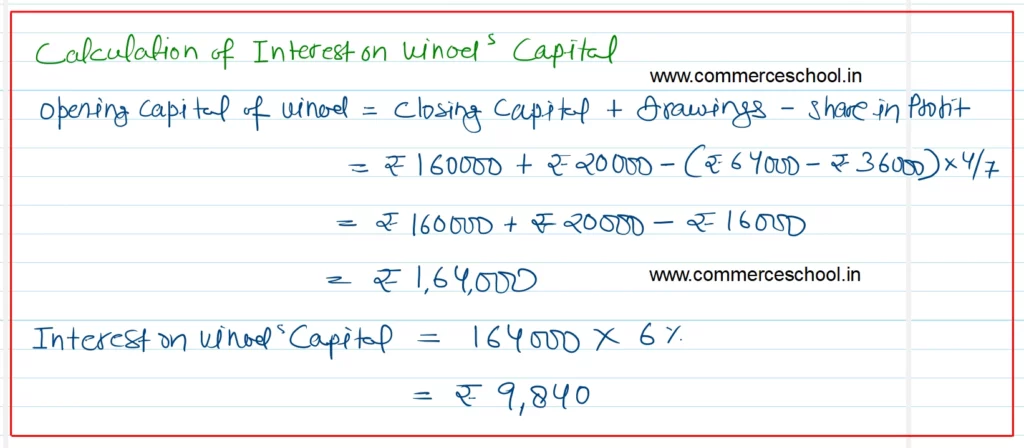 Calculation of Interest on Vinod's Capital
www.commerceschool.in
Opening Capital of Vinod = Closing Capital + Drawings - Share in Profit
= ₹ 160000 + ₹ 20000 - (₹ 64000 - ₹ 36000) × 4/7
= ₹ 160000 + ₹ 20000 - ₹ 16000
= ₹ 1,64,000
www.commerceschool.in
Interest on Vinod's Capital = 164000 × 6%
= ₹ 9,840